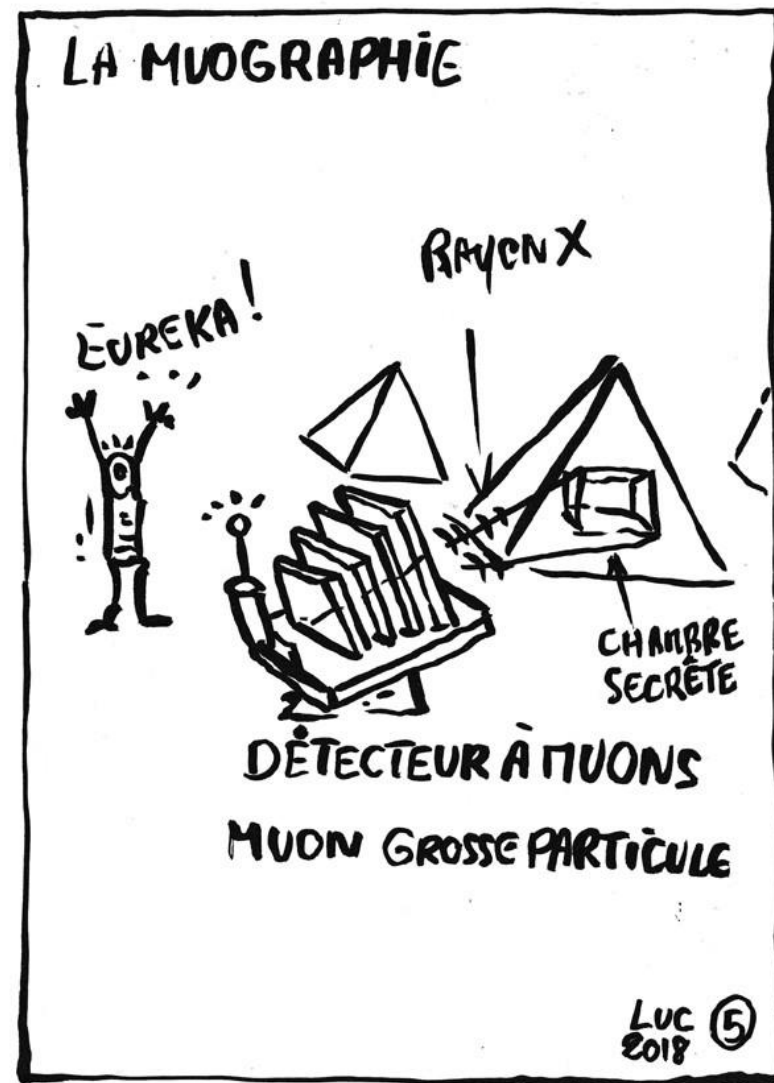 LA MUOGRAPHIE
RAYON X
EUREKA !
CHAMBRE
SECRÊTE
DÉTECTEUR À MUONS
MUON GROSSE PARTICULE
LUC 5
2018